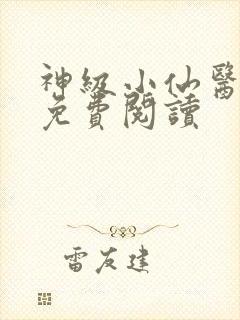 神級小仙醫
免費閱讀
雷友建